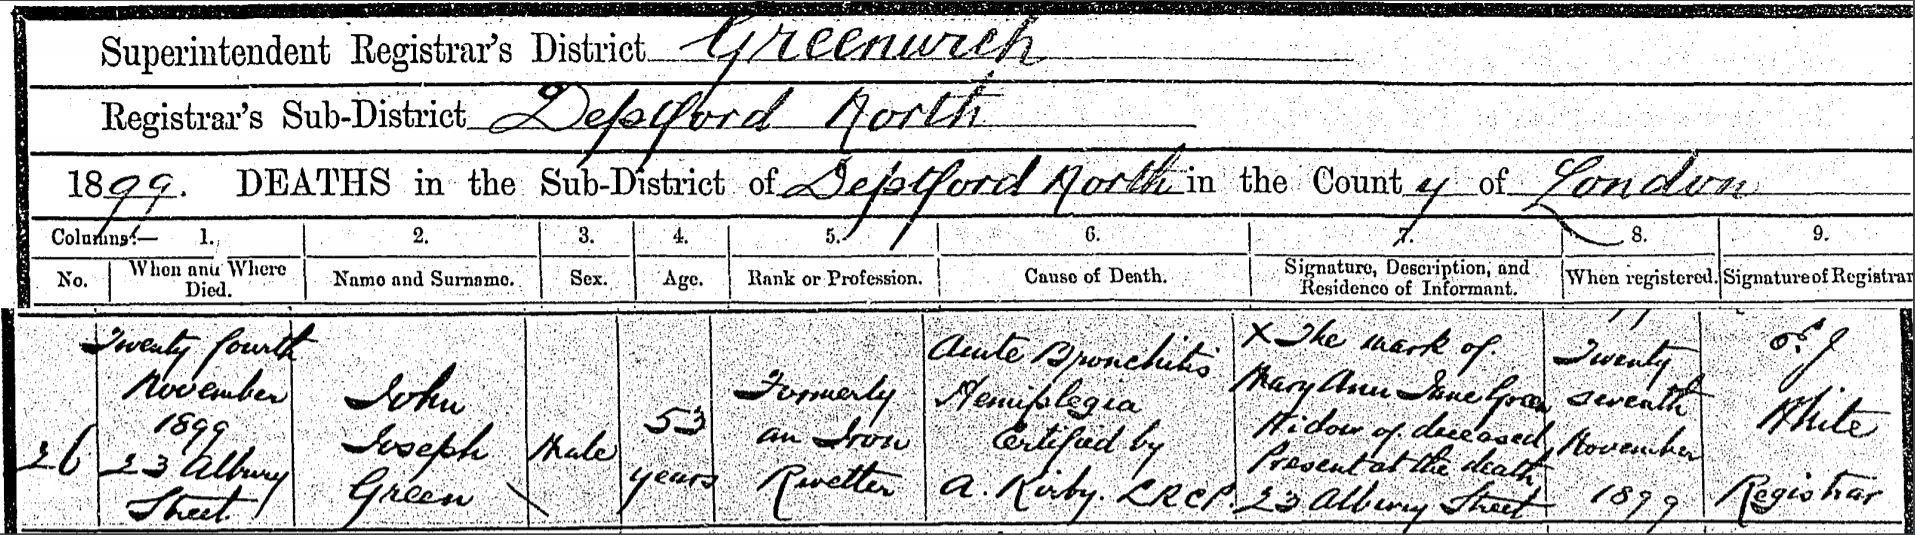 Superintendent Registrar's District Greenwich
Registrar's Sub-District Deptford North
1899. DEATHS in the Sub-District of Deptford North in the County of London
Columns:— 1. 2. 3. 4. 5. 6. 7. 8. 9.
No. When and Where Died. Name and Surname. Sex. Age. Rank or Profession. Cause of Death. Signature, Description, and Residence of Informant. When registered. Signature of Registrar
26
Twenty fourth
November
1899
23 Albury
Street
John
Joseph
Green
Male
53
years
Formerly
an Iron
Rivetter
Acute Bronchitis
Hemiplegia
Certified by
A. Kirby. LRCP.
X The mark of
Mary Ann Jane Green
Widow of deceased
Present at the death
23 Albury Street
Twenty
seventh
November
1899
J
White
Registrar